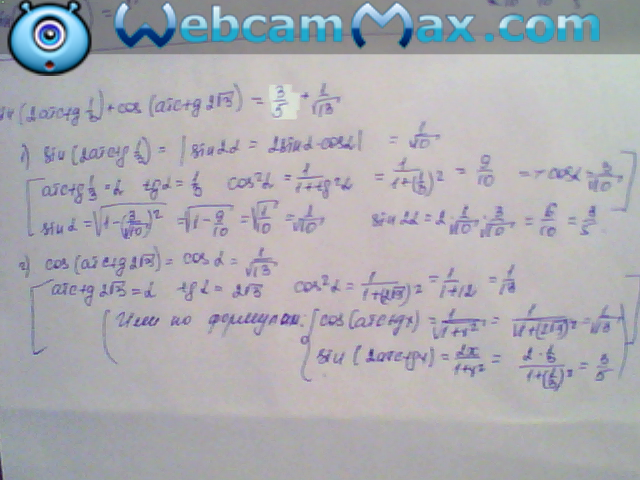 WebcamMax.com
sin(2arctg 1/3) + cos(arctg 2√3) = 3/5 + 1/√13
1) sin(2arctg 1/3) = | sin2α = 2sinα·cosα | = 1/√10
arctg 1/3 = α tgα = 1/3 cos²α = 1/(1+tg²α) = 1/(1+(1/3)²) = 9/10 => cosα = 3/√10
sinα = √(1-(3/√10)²) = √(1-9/10) = √(1/10) = 1/√10 sin2α = 2·1/√10·3/√10 = 6/10 = 3/5
2) cos(arctg 2√3) = cosα = 1/√13
arctg 2√3 = α tgα = 2√3 cos²α = 1/(1+(2√3)²) = 1/(1+12) = 1/13
Или по формулам: cos(arctgx) = 1/√(1+x²) = 1/√(1+(2√3)²) = 1/√13
sin(2arctgx) = 2x/(1+x²) = (2·1/3)/(1+(1/3)²) = 3/5